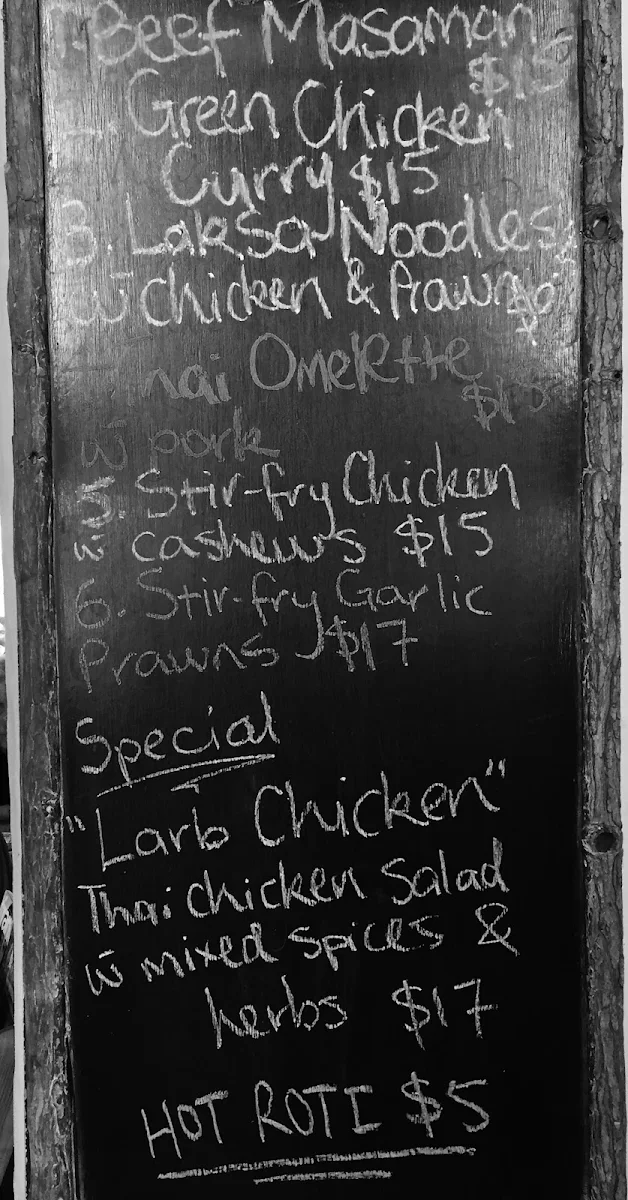 1. Beef Masaman
$15
2. Green Chicken
Curry $15
3. Laksa Noodles
w chicken & Prawns
Thai Omelette
w pork
5. Stir-fry Chicken
w cashews $15
6. Stir-fry Garlic
Prawns $17
Special
"Larb Chicken"
Thai chicken salad
w mixed spices &
herbs $17
HOT ROTI $5